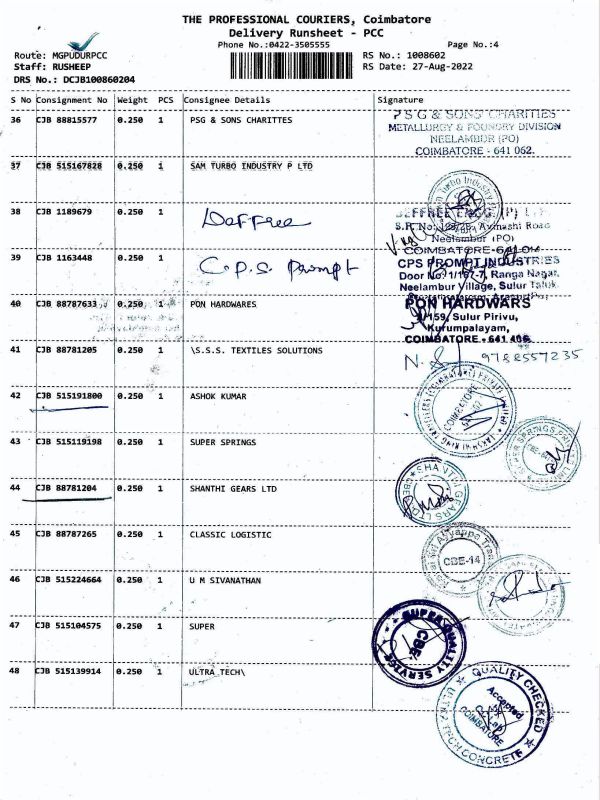 THE PROFESSIONAL COURIERS, Coimbatore
Delivery Runsheet - PCC
Phone No.:0422-3505555 Page No.:4
Route: MGPUDURPCC RS No.: 1008602
Staff: RUSHEEP RS Date: 27-Aug-2022
DRS No.: DCJB100860204
S No Consignment No Weight PCS Consignee Details Signature
36 CJB 88815577 0.250 1 PSG & SONS CHARITTES
PSG & SONS' CHARITIES
METALLURGY & FOUNDRY DIVISION
NEELAMBUR (PO)
COIMBATORE - 641 062.
37 CJB 515167828 0.250 1 SAM TURBO INDUSTRY P LTD
Turbo Industry
38 CJB 1189679 0.250 1 Deffree
Avinashi Road
Neelambur (PO)
COIMBATORE-641
39 CJB 1163448 0.250 1 C.P.S. Prompt
CPS PROMPT INDUSTRIES
Door No. 1/167-7, Ranga Nagar,
Neelambur Village, Sulur Taluk,
40 CJB 88787633 0.250 1 PON HARDWARES
PON HARDWARS
/159, Sulur Pirivu,
Kurumpalayam,
COIMBATORE - 641 406
41 CJB 88781205 0.250 1 \S.S.S. TEXTILES SOLUTIONS
9788557235
42 CJB 515191800 0.250 1 ASHOK KUMAR
COIMBATORE
43 CJB 515119198 0.250 1 SUPER SPRINGS
SPRINGS
44 CJB 88781204 0.250 1 SHANTHI GEARS LTD
GEARS LTD
CBE
45 CJB 88787265 0.250 1 CLASSIC LOGISTIC
CBE-14
46 CJB 515224664 0.250 1 U M SIVANATHAN
47 CJB 515104575 0.250 1 SUPER
SUPER QUALITY
SERVICE
CBE
48 CJB 515139914 0.250 1 ULTRA TECH\
QUALITY CHECKED
Accepted
Lab
COIMBATORE
ULTRA TECH CONCRETE